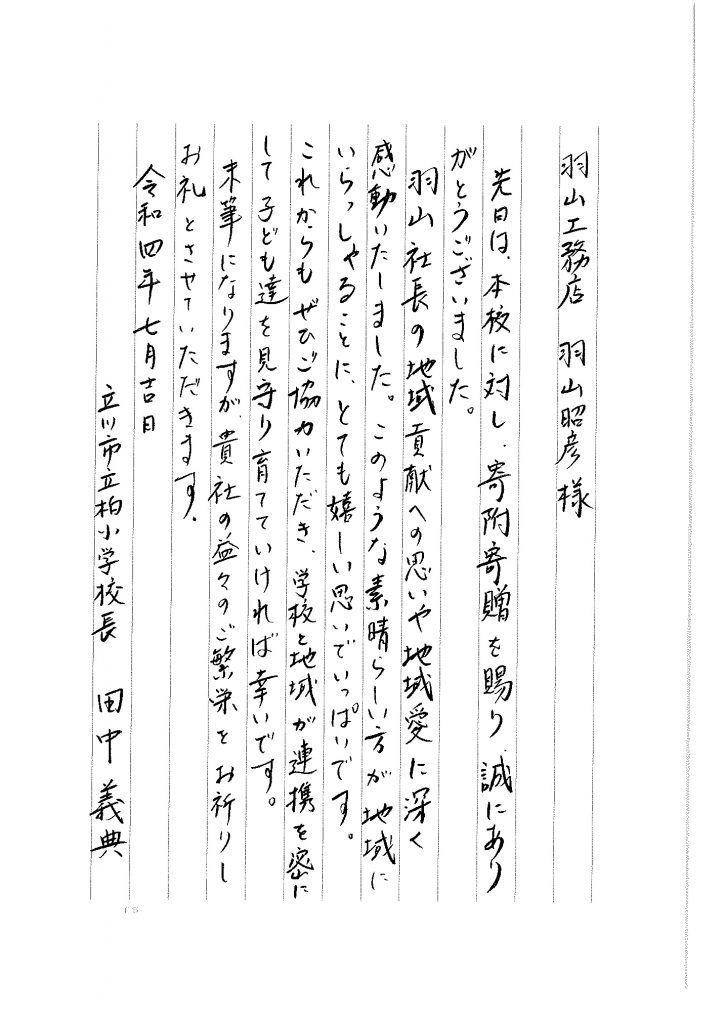 羽山工務店 羽山昭彦様
先日は、本校に対し、寄附寄贈を賜り、誠にあり
がとうございました。
羽山社長の地域貢献への思いや地域愛に深く
感動いたしました。このような素晴らしい方が地域に
いらっしゃることに、とても嬉しい思いでいっぱいです。
これからもぜひご協力いただき、学校と地域が連携を密に
して子ども達を見守り育てていければ幸いです。
末筆になりますが、貴社の益々のご繁栄をお祈りし
お礼とさせていただきます。
令和四年七月吉日
立川市立柏小学校長 田中義典